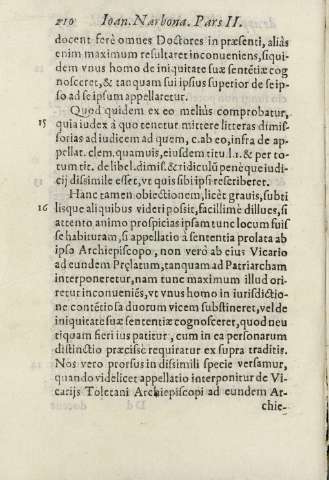 210 Ioan. Narbona. Pars II.
docent ferè omnes Doctores in præsenti, aliàs
enim maximum resultaret inconueniens, siqui-
dem vnus homo de iniquitate suæ sentẽtiæ cog
nosceret, & tanquam sui ipsius superior de se ip-
so ad se ipsum appellaretur.
Quod quidem ex eo meliùs comprobatur,
15 quia iudex à quo tenetur mittere litteras dimis-
sorias ad iudicem ad quem, c. ab eo, infra de ap-
pellat. clem. quamuis, eiusdem titu l. 1. & per to-
tum tit. de libel. dimis. & ridiculũ penè que iudi-
cij dissimile esset, vt quis sibi ipsi rescriberet.
Hanc tamen obiectionem, licèt grauis, subti
16 lisque aliquibus videri possit, facillimè dillues, si
attento animo prospicias ipsam tunc locum fuis
se habituram, si appellatio à sententia prolata ab
ipso Archiepiscopo, non verò ab eius Vicario
ad eundem Prælatum, tanquam ad Patriarcham
interponeretur, nam tunc maximum illud ori-
retur inconueniẽs, vt vnus homo in iurisdictio-
ne contẽtiosa duorum vicem substineret, vel de
iniquitate suæ sententiæ cognosceret, quod neu
tiquam fieri ius patitur, cum in ea personarum
distinctio præcisè requiratur ex supra traditis.
Nos vero prorsus in dissimili specie versamur,
quando videlicet appellatio interponitur de Vi-
carijs Toletani Archiepiscopi ad eundem Ar-
chie-